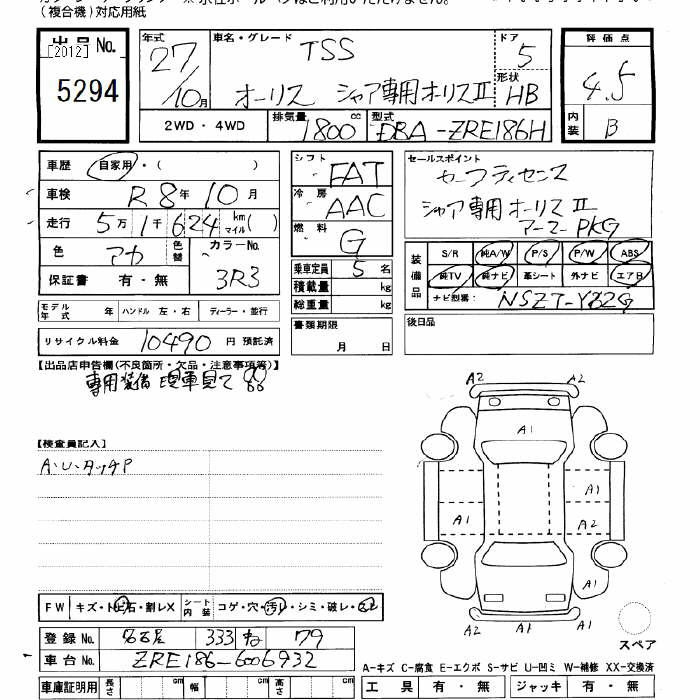 (複合機)対応用紙
出品No. [2012] 5294
年式 27/10月
車名・グレード TSS
オーリス シャア専用オーリスⅡ
ドア 5
形状 HB
評価点 4.5
内装 B
2WD・4WD 排気量 1800cc 型式 DBA-ZRE186H
車歴 自家用・( )
車検 R8年10月
走行 5万1千624km マイル( )
色 アカ 色替 カラーNo. 3R3
保証書 有・無
シフト FAT
冷房 AAC
燃料 G
乗車定員 5名
積載量 kg
総重量 kg
セールスポイント
セーフティセンス
シャア専用オーリスⅡ
アーマーPKG
装備品 S/R 純A/W P/S P/W ABS
純TV 純ナビ 革シート 外ナビ エアB
ナビ型番: NSZT-Y62G
モデル年式 年 ハンドル 左・右 ディーラー・並行
リサイクル料金 10490 円 預託済
書類期限 月 日
後日品
【出品店申告欄(不良箇所・欠品・注意事項等)】
専用装備 現車見て
【検査員記入】
A・U・タッチP
A2 A2
A1
A1
A1 A2
A1
A1
A2 A1
スペア
FW キズ・トビ石・割レX シート内装 コゲ・穴・汚レ・シミ・破レ・スレ
登録No. 名古屋 333 ね 79
車台No. ZRE186-6006932
車庫証明用 長さ cm 幅 cm 高さ cm
A-キズ C-腐食 E-エクボ S-サビ U-凹ミ W-補修 XX-交換済
工具 有・無 ジャッキ 有・無